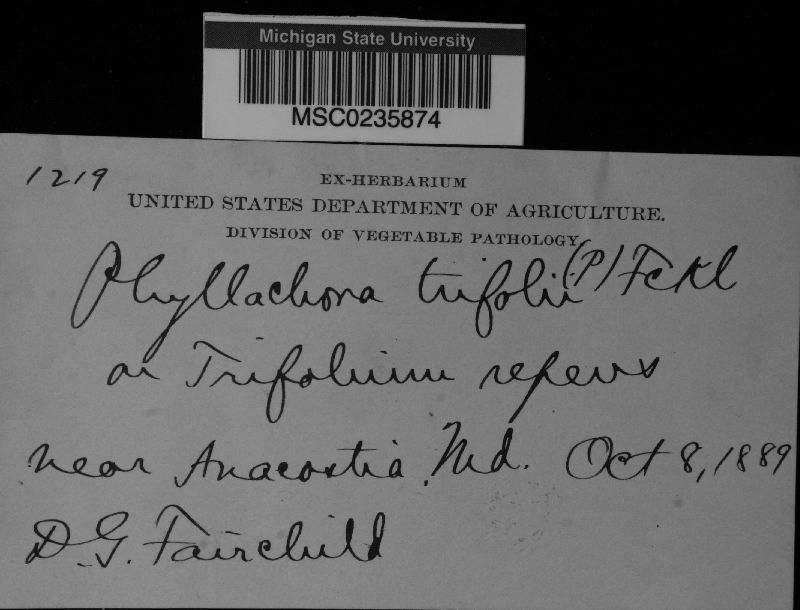 Michigan State University
MSC0235874
1219
EX-HERBARIUM
UNITED STATES DEPARTMENT OF AGRICULTURE.
DIVISION OF VEGETABLE PATHOLOGY.
Phyllachora trifolii (P) Fckl
on Trifolium repens
near Anacostia, Md. Oct 8, 1889
D. G. Fairchild